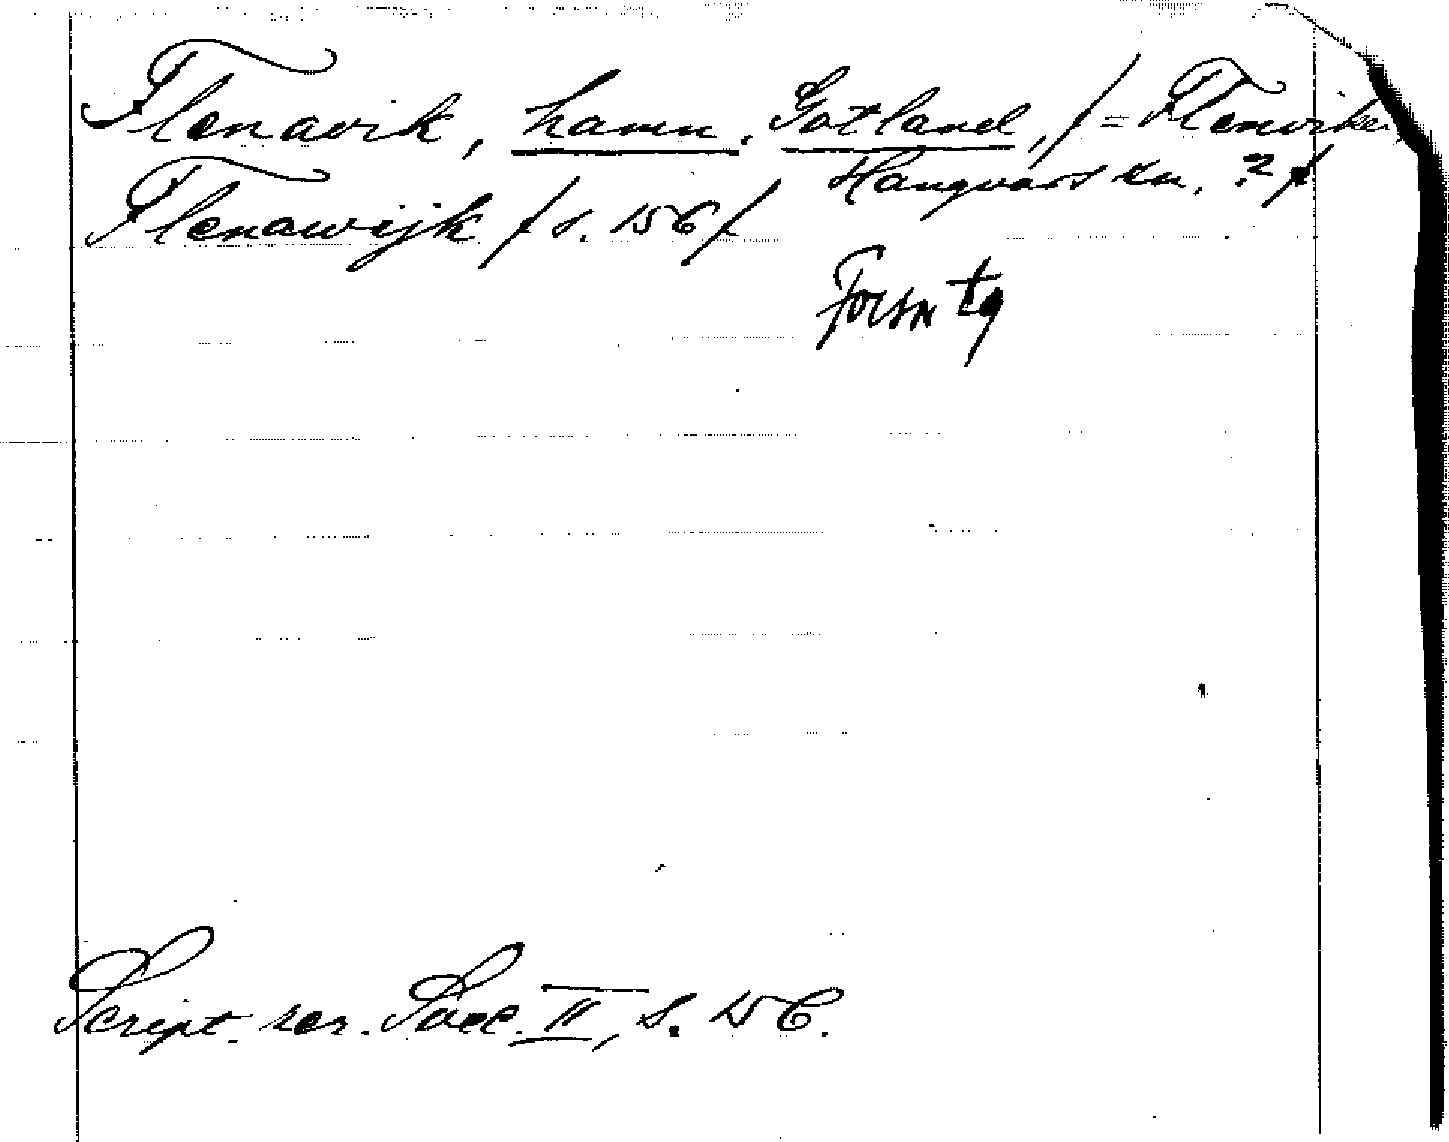 Flenavik, hamn. Gotland, /= Flenviken
Hangvars sn. ? /
Flenawijk / s. 156 /
Forsn tg
Script. rer. Svec. II, s. 156.